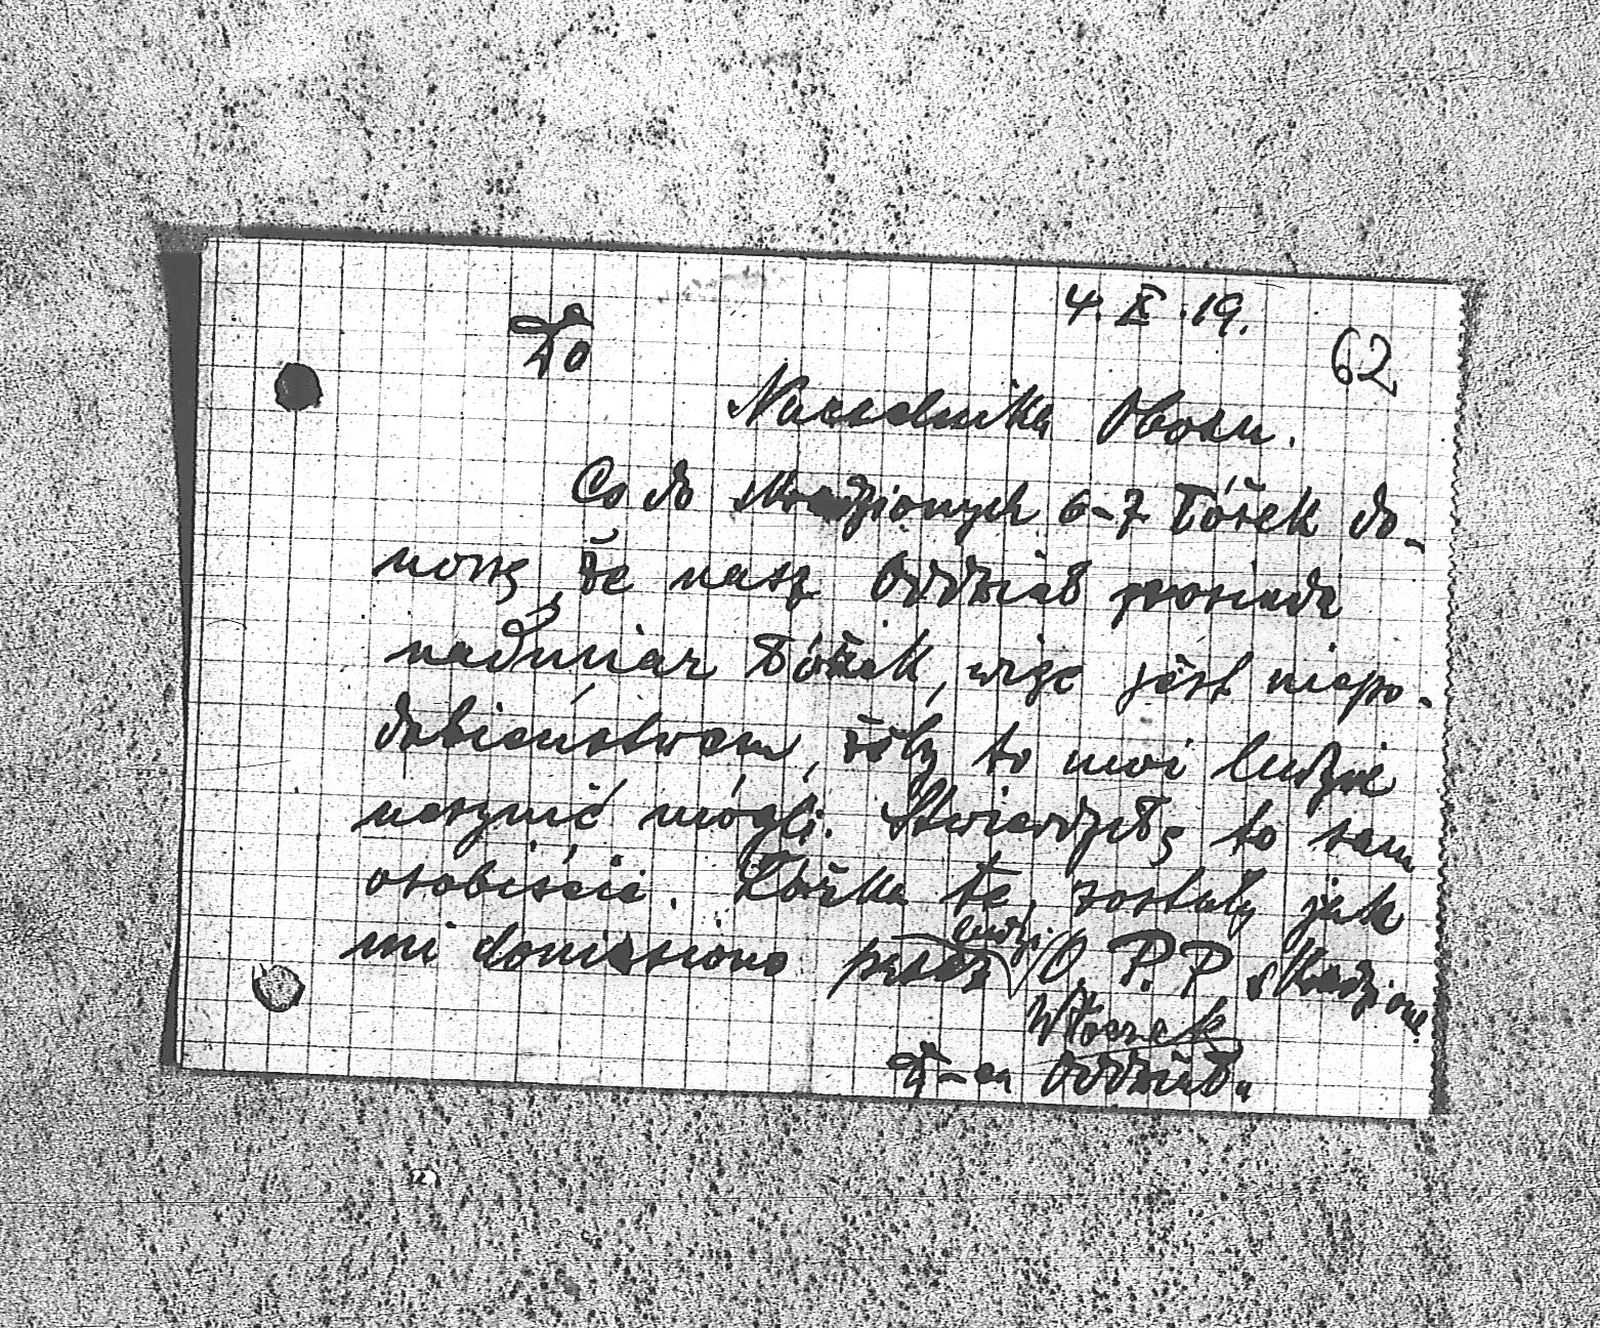 4. X. 19.
62
Do
Naczelnika Obozu.
Co do skradzionych 6-7 łóżek do-
noszę, że nasz Oddział posiada
nadmiar łóżek, więc jest niepo-
dobieństwem, żeby to moi ludzie
uczynić mogli. Stwierdziłę to sam
osobiście. Łóżka te, zostały jak
mi doniesiono przez ludzi O. P. P. skradzione
Włoczek
Oddziału